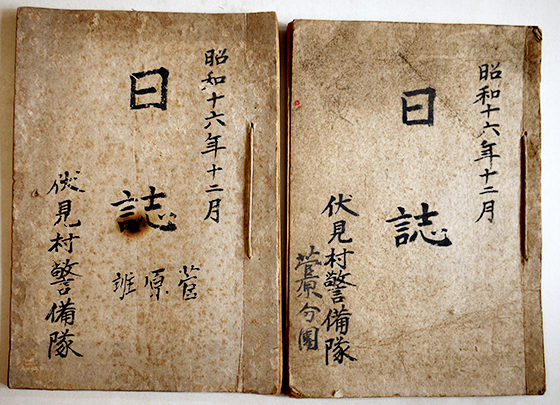 昭和十六年十二月
日誌
菅原班
伏見村警備隊
昭和十六年十二月
日誌
伏見村警備隊
菅原分團